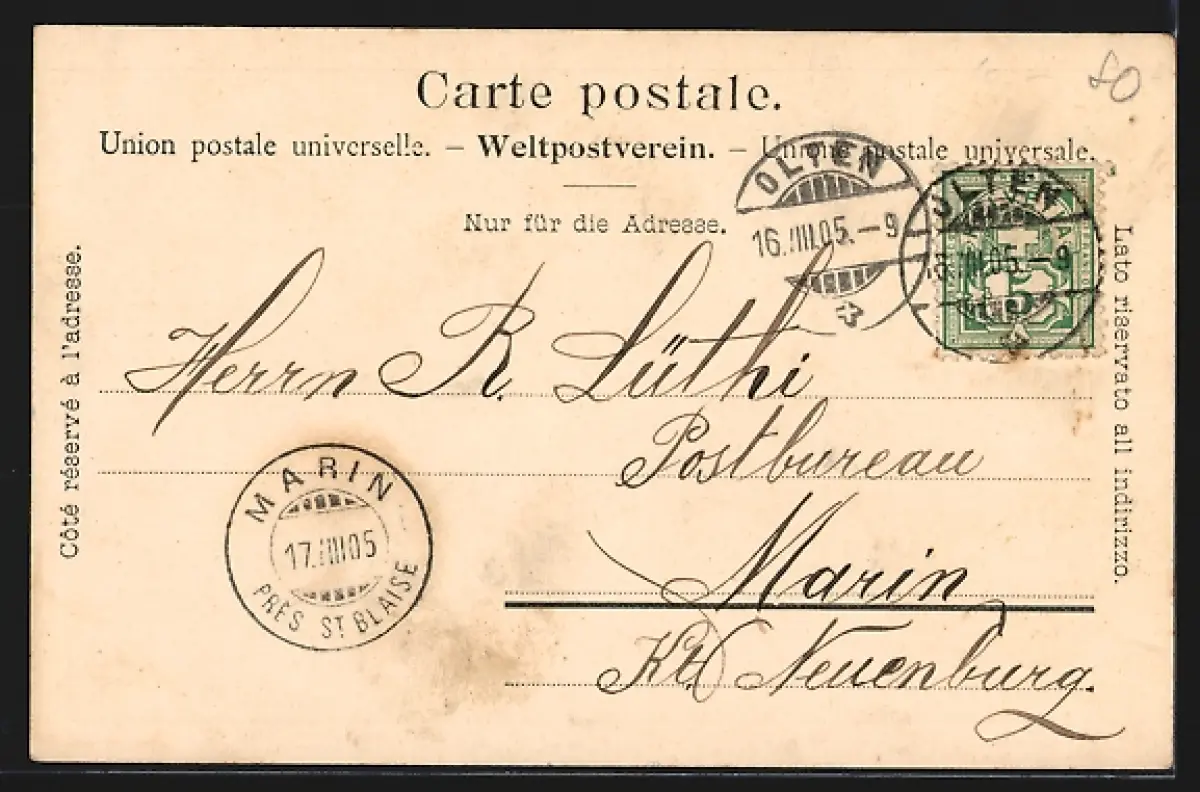 80
Carte postale.
Union postale universelle. – Weltpostverein. – Unione postale universale.
Nur für die Adresse.
Côté réservé à l'adresse.
Lato riservato all indirizzo.
OLTEN
16.III.05.–9
OLTEN
16.III.05.–9
5
Herrn R. Lüthi
Postbureau
Marin
Kt. Neuenburg.
MARIN
17.III.05
PRÈS ST BLAISE